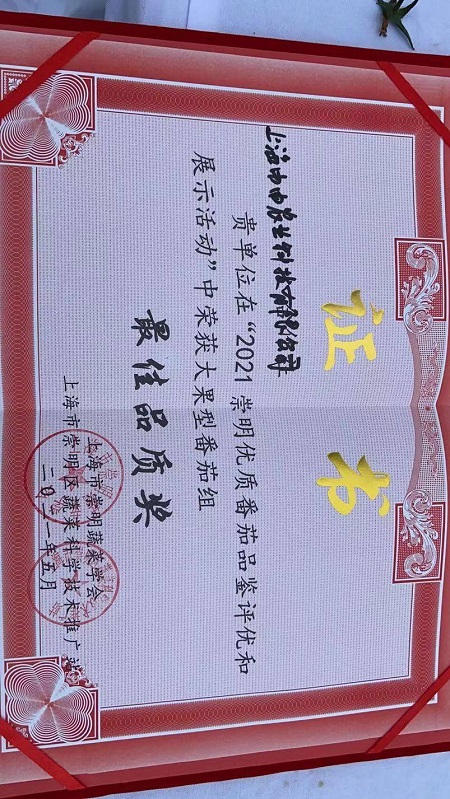 证书
上海由由农业科技有限公司
贵单位在“2021崇明优质番茄品鉴评优和
展示活动”中荣获大果型番茄组
最佳品质奖
上海市崇明蔬菜学会
上海市崇明区蔬菜科学技术推广站
二〇二一年五月